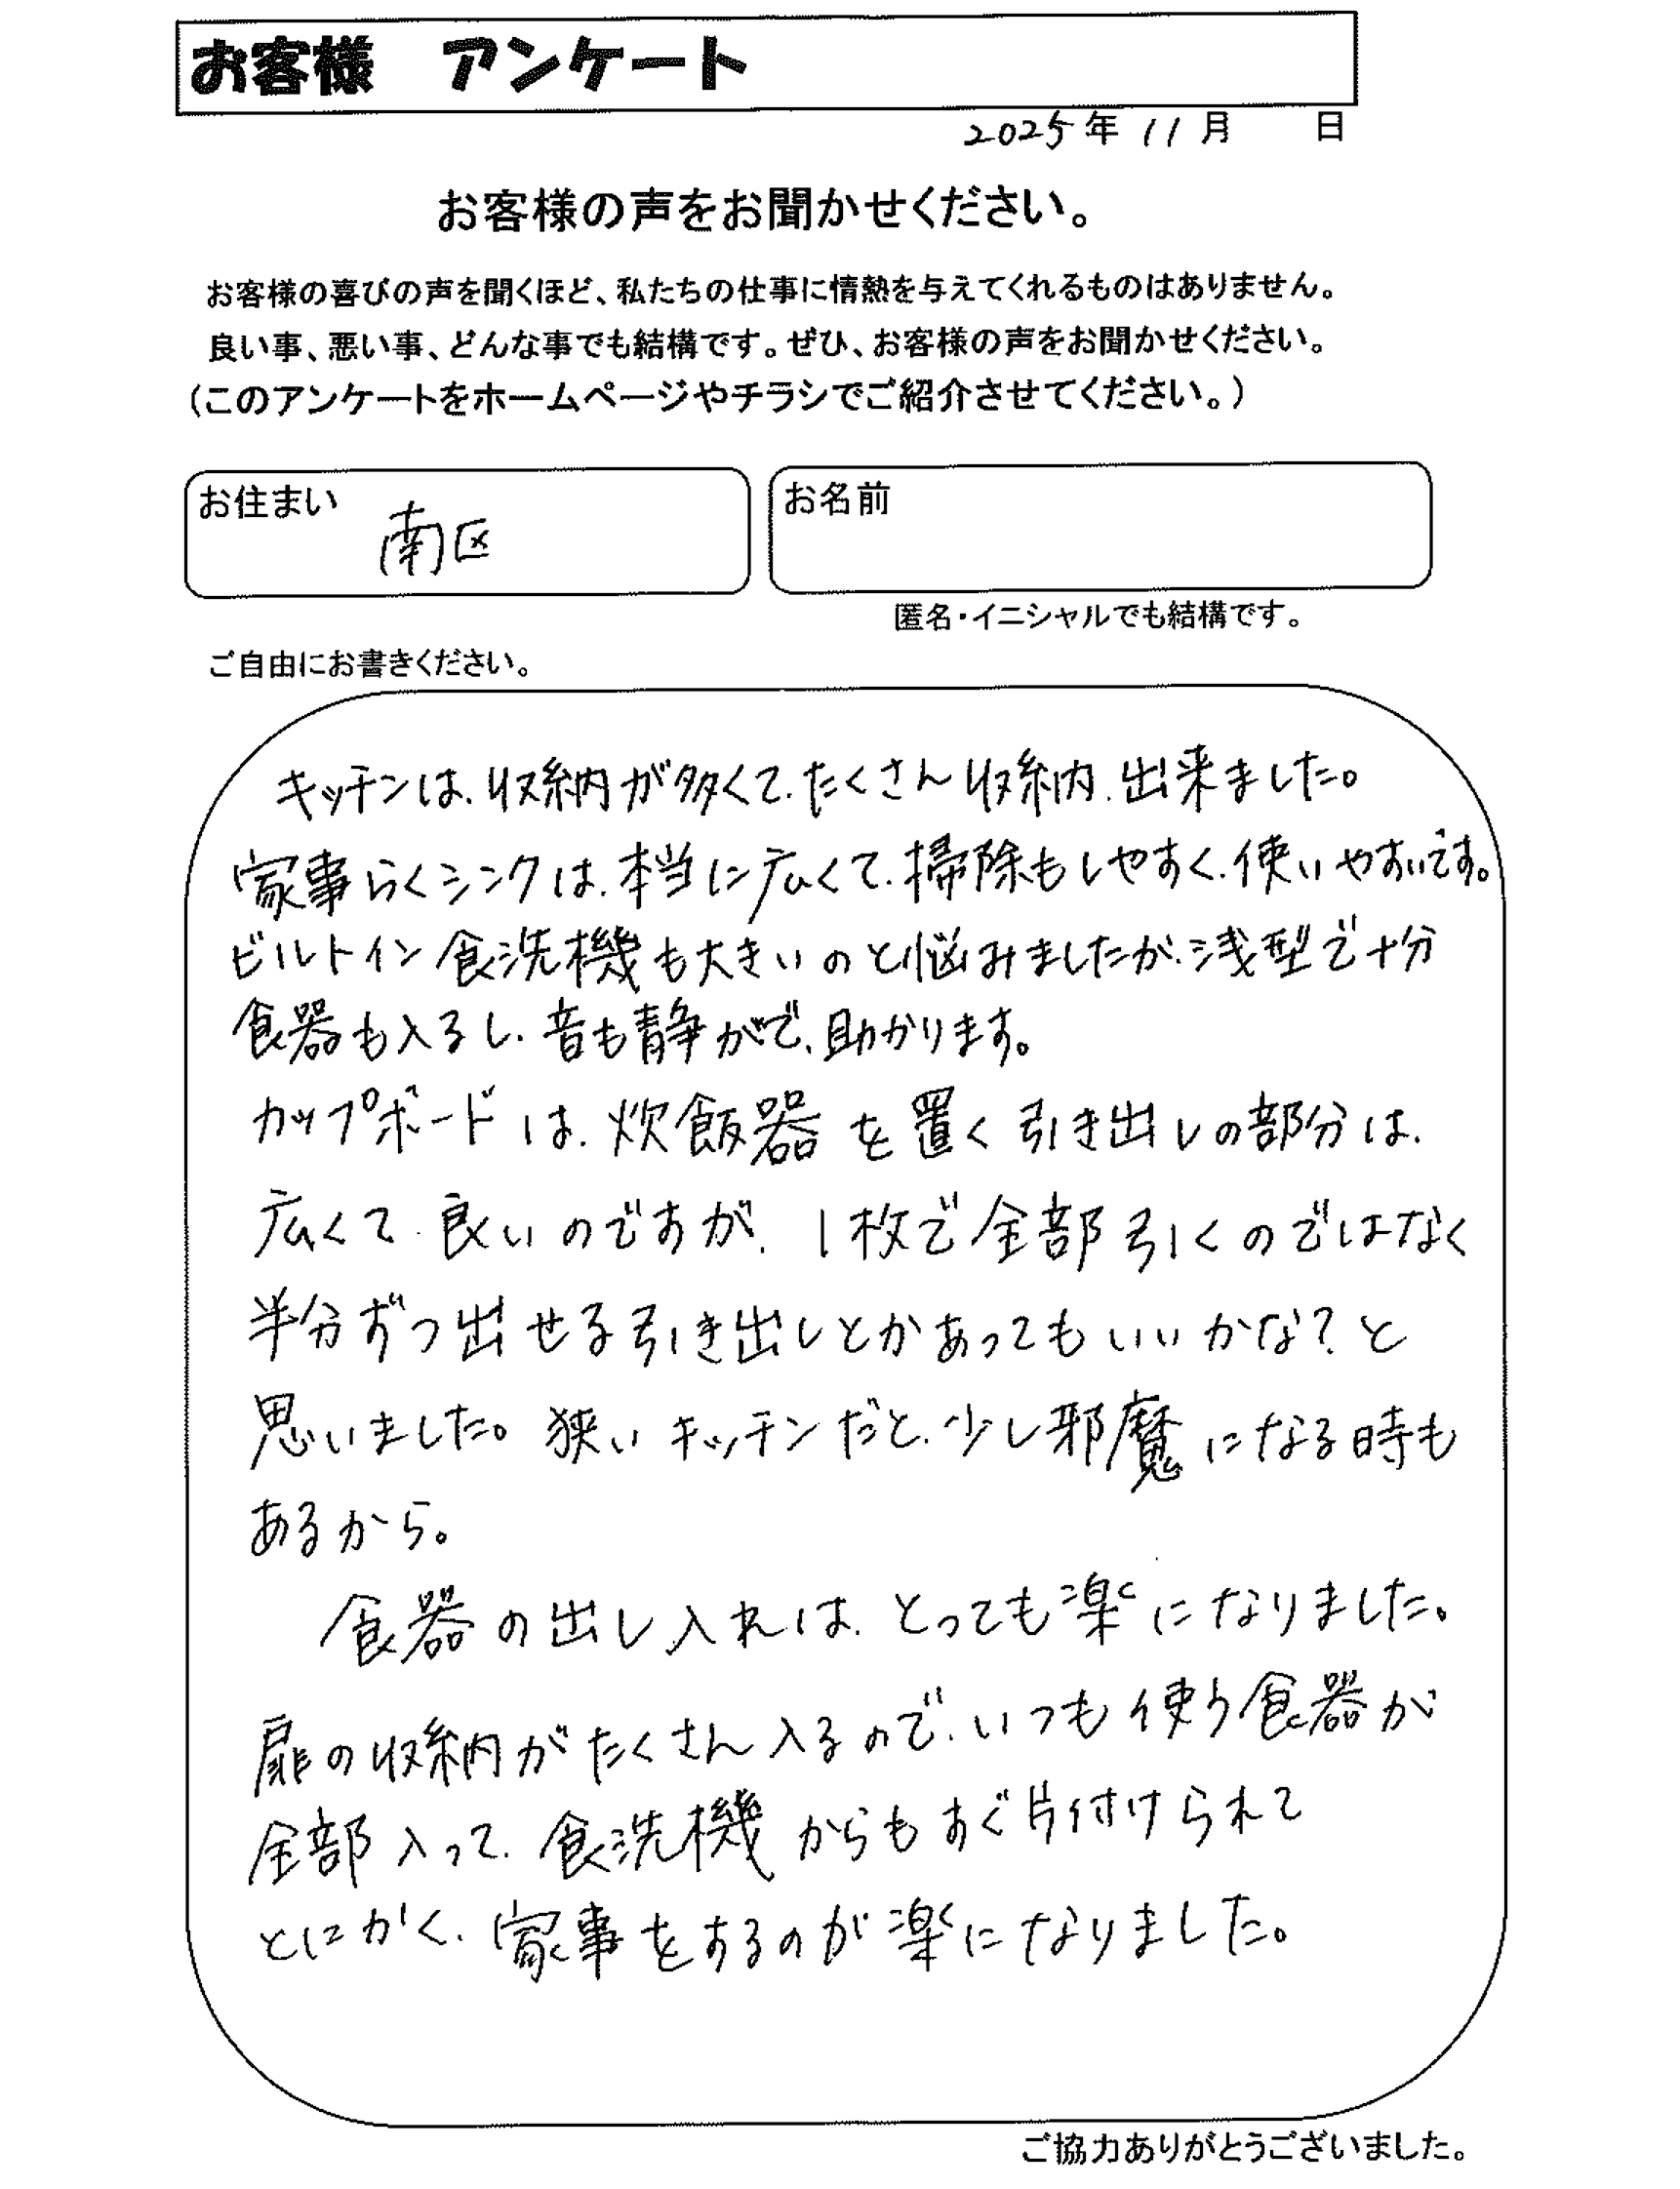 お客様　アンケート
2025年 11月　　日
お客様の声をお聞かせください。
お客様の喜びの声を聞くほど、私たちの仕事に情熱を与えてくれるものはありません。
良い事、悪い事、どんな事でも結構です。ぜひ、お客様の声をお聞かせください。
（このアンケートをホームページやチラシでご紹介させてください。）
お住まい 南区
お名前
匿名・イニシャルでも結構です。
ご自由にお書きください。
キッチンは、収納が多くて、たくさん収納、出来ました。
家事らくシンクは、本当に広くて、掃除もしやすく、使いやすいです。
ビルトイン食洗機も大きいのと悩みましたが、浅型で十分
食器も入るし、音も静かで、助かります。
カップボードは、炊飯器を置く引き出しの部分は、
広くて良いのですが、1枚で全部引くのではなく
半分ずつ出せる引き出しとかあってもいいかな？と
思いました。狭いキッチンだと、少し邪魔になる時も
あるから。
食器の出し入れは、とっても楽になりました。
扉の収納がたくさん入るので、いつも使う食器が
全部入って、食洗機からもすぐ片付けられて
とにかく、家事をするのが楽になりました。
ご協力ありがとうございました。